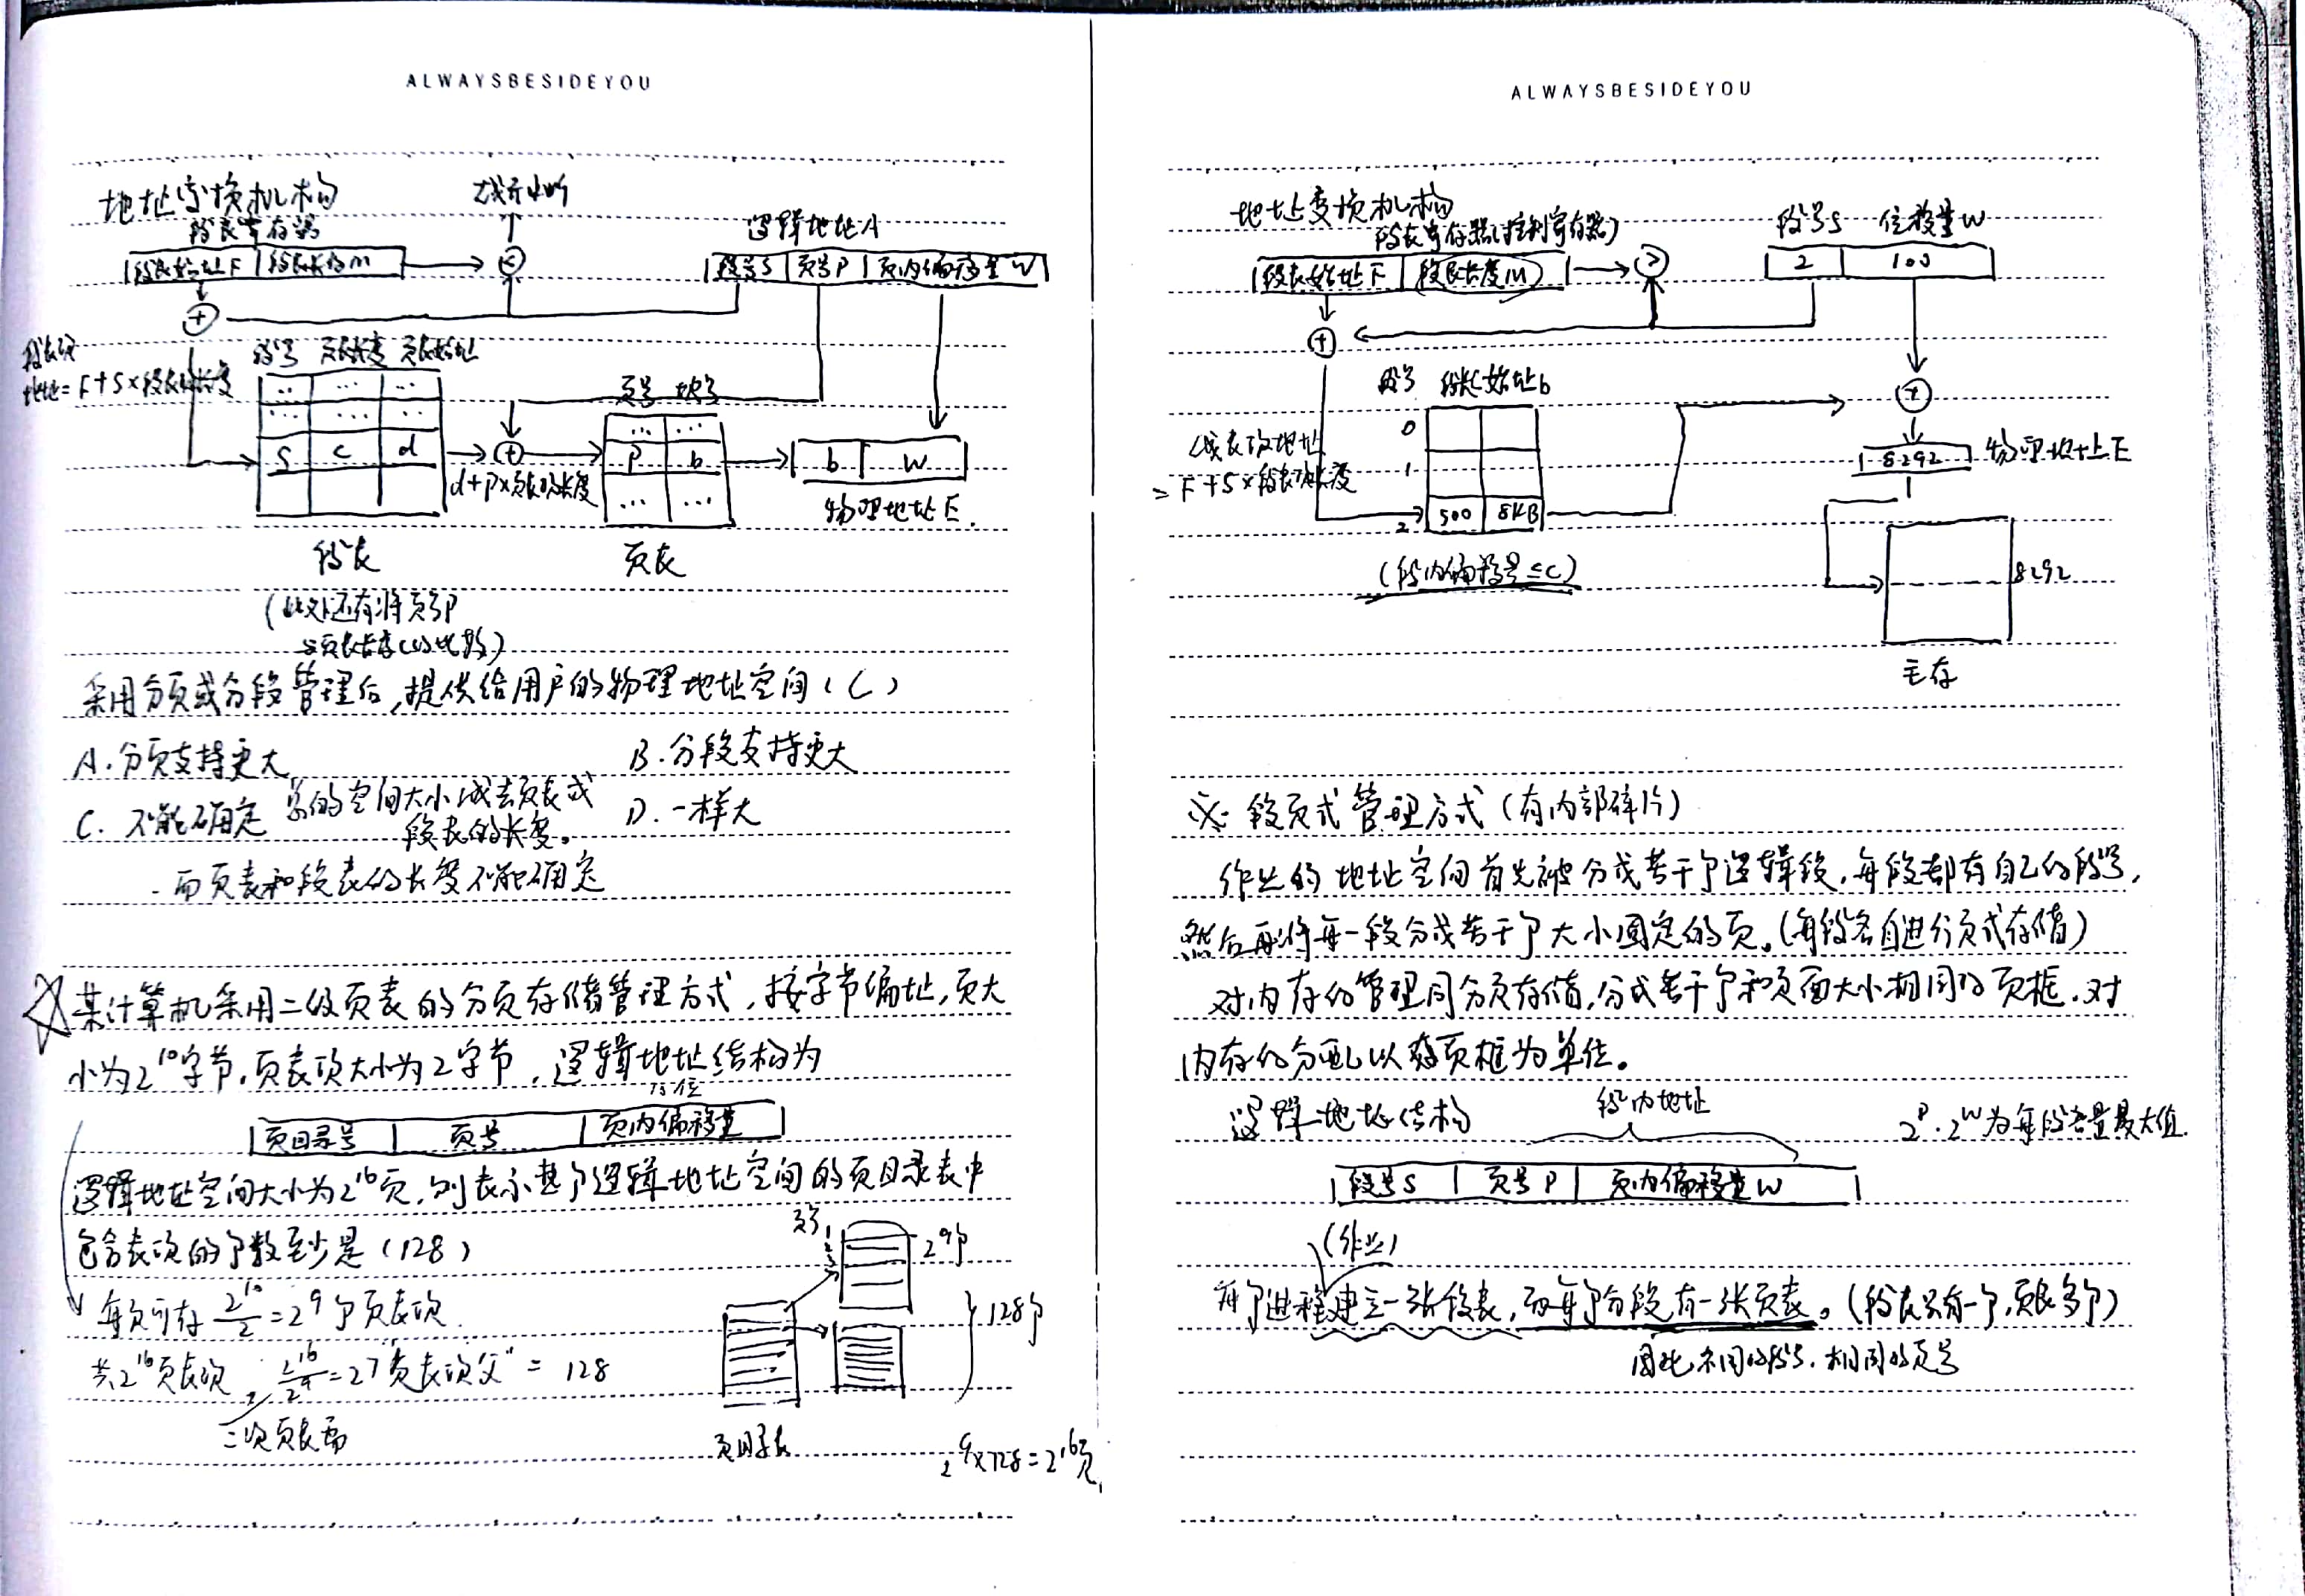 ALWAYSBESIDEYOU
地址变换机构
越界中断
段表寄存器
逻辑地址A
段表始址F 段表长度m
<
段号S 页号P 页内偏移量W
+
段表项
地址=F+S×段表项长度
段号 页表长度 页表始址
页号 块号
S c d
+
p b
b W
d+p×页表项长度
物理地址E
段表
页表
(此处还有将页号P
与页表长度C的比较)
采用分页或分段管理后,提供给用户的物理地址空间(C)
A.分页支持更大
B.分段支持更大
C.不能确定
总的空间大小减去页表或
段表的长度。
D.一样大
而页表和段表的长度不能确定
☆某计算机采用二级页表的分页存储管理方式,按字节编址,页大
小为2^10字节,页表项大小为2字节,逻辑地址结构为
页目录号 页号 页内偏移量
逻辑地址空间大小为2^16页,则表示整个逻辑地址空间的页目录表中
包含表项的个数至少是(128)
页号
2^9个
每页可存 2^10/2=2^9个页表项
128个
共2^16页表项, 2^16/2^9=2^7 = 128
页目录表
2^9×128=2^16页
ALWAYSBESIDEYOU
地址变换机构
段表寄存器(控制寄存器)
段号S 位移量W
段表始址F 段表长度M
>
2 100
+
段号 段长 始址b
0
+
= F+S×段表项长度
1
8292 物理地址E
2 500 8KB
(段内偏移量≤C)
8292
主存
※ 段页式管理方式(有内部碎片)
作业的地址空间首先被分成若干个逻辑段,每段都有自己的段号,
然后再将每一段分成若干个大小固定的页。(每段各自进行页式存储)
对内存的管理同分页存储,分成若干个和页面大小相同的页框,对
内存的分配以页框为单位。
逻辑地址结构
段内地址
2^P·2^W为每段容量最大值.
段号S 页号P 页内偏移量W
(作业)
每个进程建立一张段表,而每个分段有一张页表。(段表只有一个,页表多个)
因此不同的段号,相同的页号